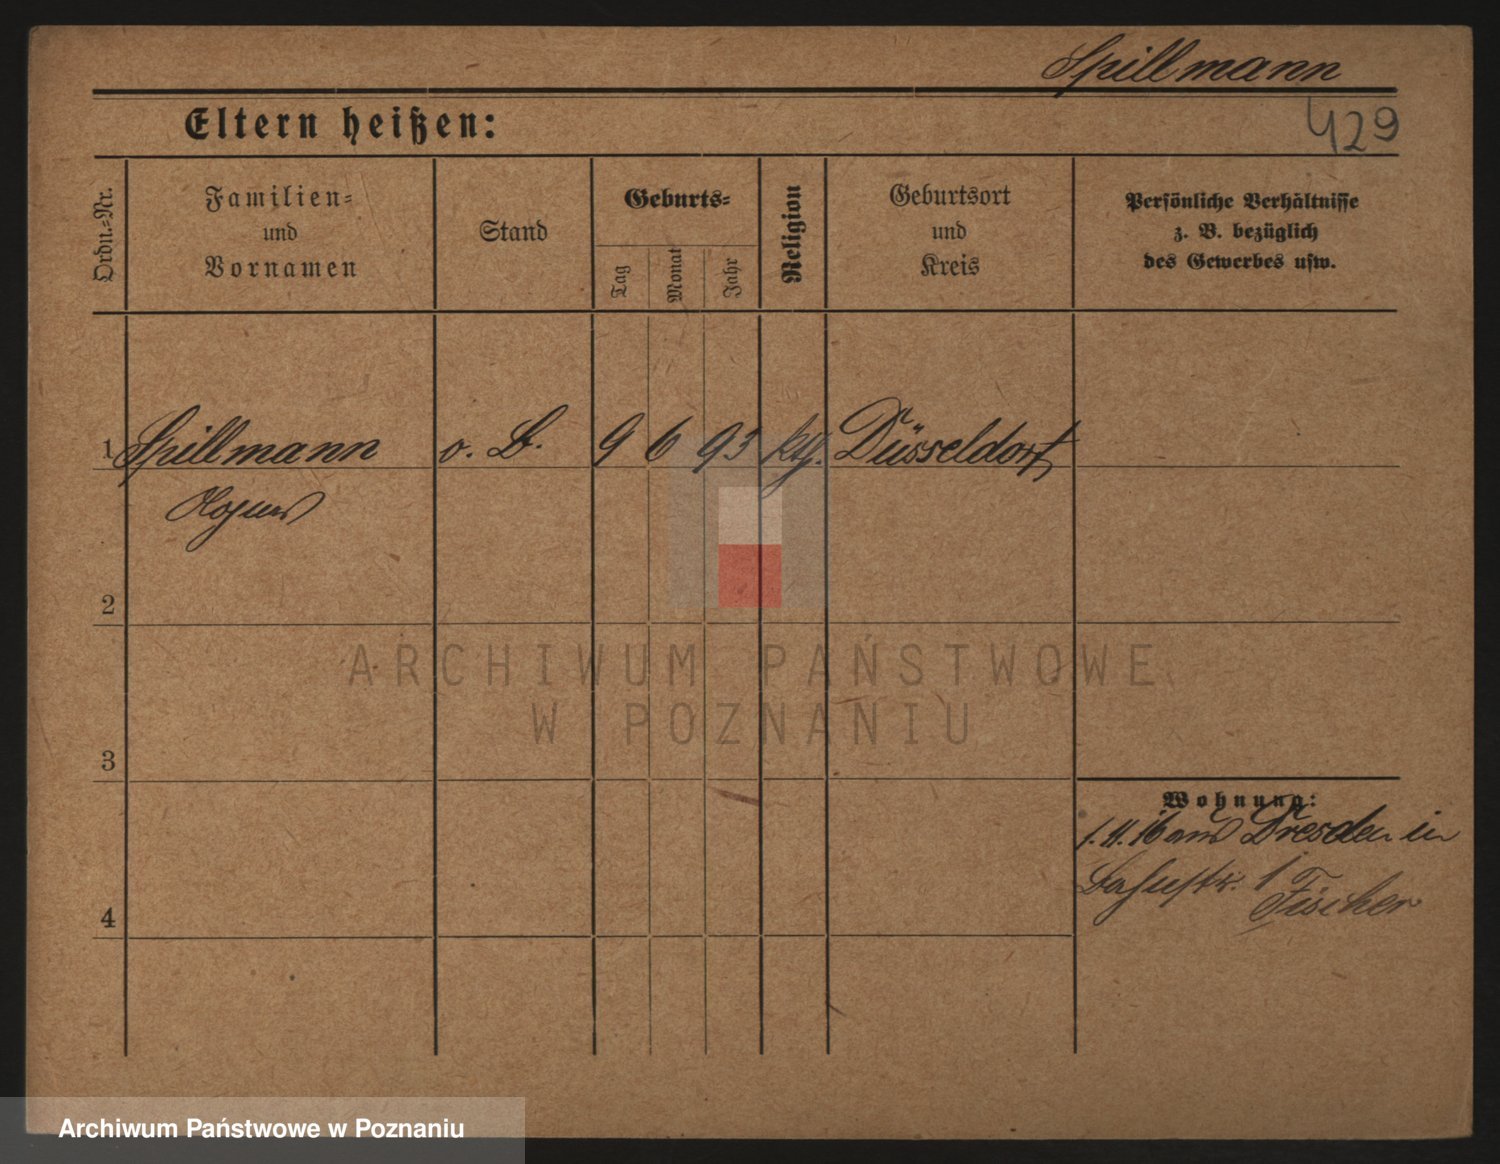 Spillmann
429
Eltern heißen:
Ordn.-Nr.
Familien-
und
Vornamen
Stand
Geburts-
Tag
Monat
Jahr
Religion
Geburtsort
und
Kreis
Persönliche Verhältnisse
z. B. bezüglich
des Gewerbes usw.
1 Spillmann o. B. 9 6 93 kth. Düsseldorf
2
ARCHIWUM PAŃSTWOWE
W POZNANIU
3
Wohnung:
Dresden in
4
1
Fischer
Archiwum Państwowe w Poznaniu